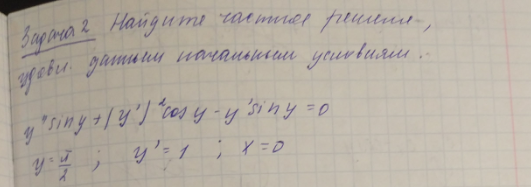 Задача 2 Найдите частное решение,
удовл. данным начальным условиям.
y'' sin y + (y')² cos y - y' sin y = 0
y = π/2 ; y' = 1 ; x = 0